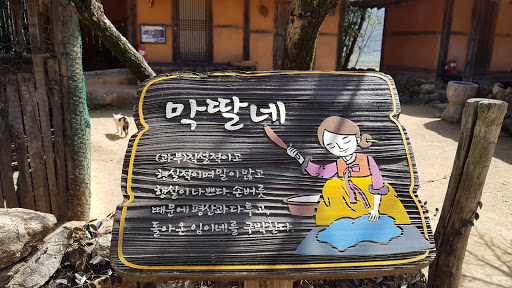 막딸네
(과부)직설적이고
현실적이며 말이 많고
행실이 나쁘다. 숟버릇
때문에 평산과 다투고,
돌아온 임이네를 구박한다.